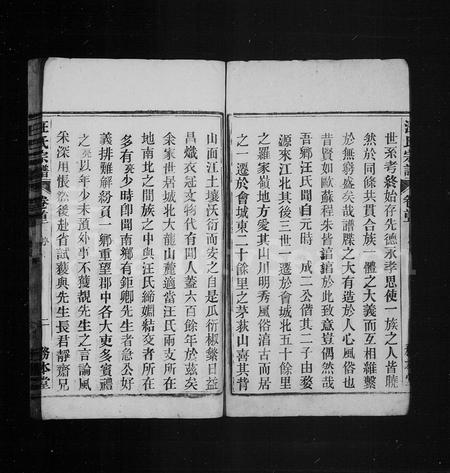 世系考終始存先德永孝思使一族之人皆曉
然於同條共貫合族一體之大義而互相維繫
於無窮盛矣哉譜牒之大有造於人心風俗也
昔賢如歐蘇程朱皆諳諳於此致意豈偶然哉
吾鄉汪氏聞自元時 成二公偕其二子由婺
源來江北其後三世一遷於會城北五十餘里
之羅家嶺地方愛其山川明秀風俗淳古而居
之一遷於會城東二十餘里之茅荻山喜其背
山面江土壤沃衍而安之自是瓜衍椒繁日益
昌熾衣冠文物代有聞人蓋六百餘年於茲矣
余家世居城北大龍山麓適當汪氏兩支所在
地南北之間族之中與汪氏締婣結交者所在
多有余少時卽聞南鄉有鉅卿先生者急公好
義排難解紛員一鄉重望郡中各大吏多賓禮
之余以年少未預外事不獲覩先生之言論風
采深用悵然後赴省試獲與先生長君靜齋兄
汪氏宗譜
卷首
務本堂
汪氏宗譜
卷首